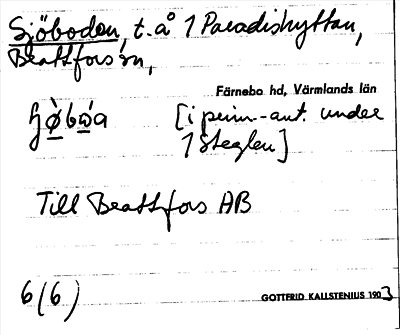 Sjöboden, t. å 1 Paradishyttan,
Brattfors sn,
Färnebo hd, Värmlands län
[i prim.-ant. under
1 Steglen]
Till Brattfors AB
6(6)
GOTTFRID KALLSTENIUS 1903